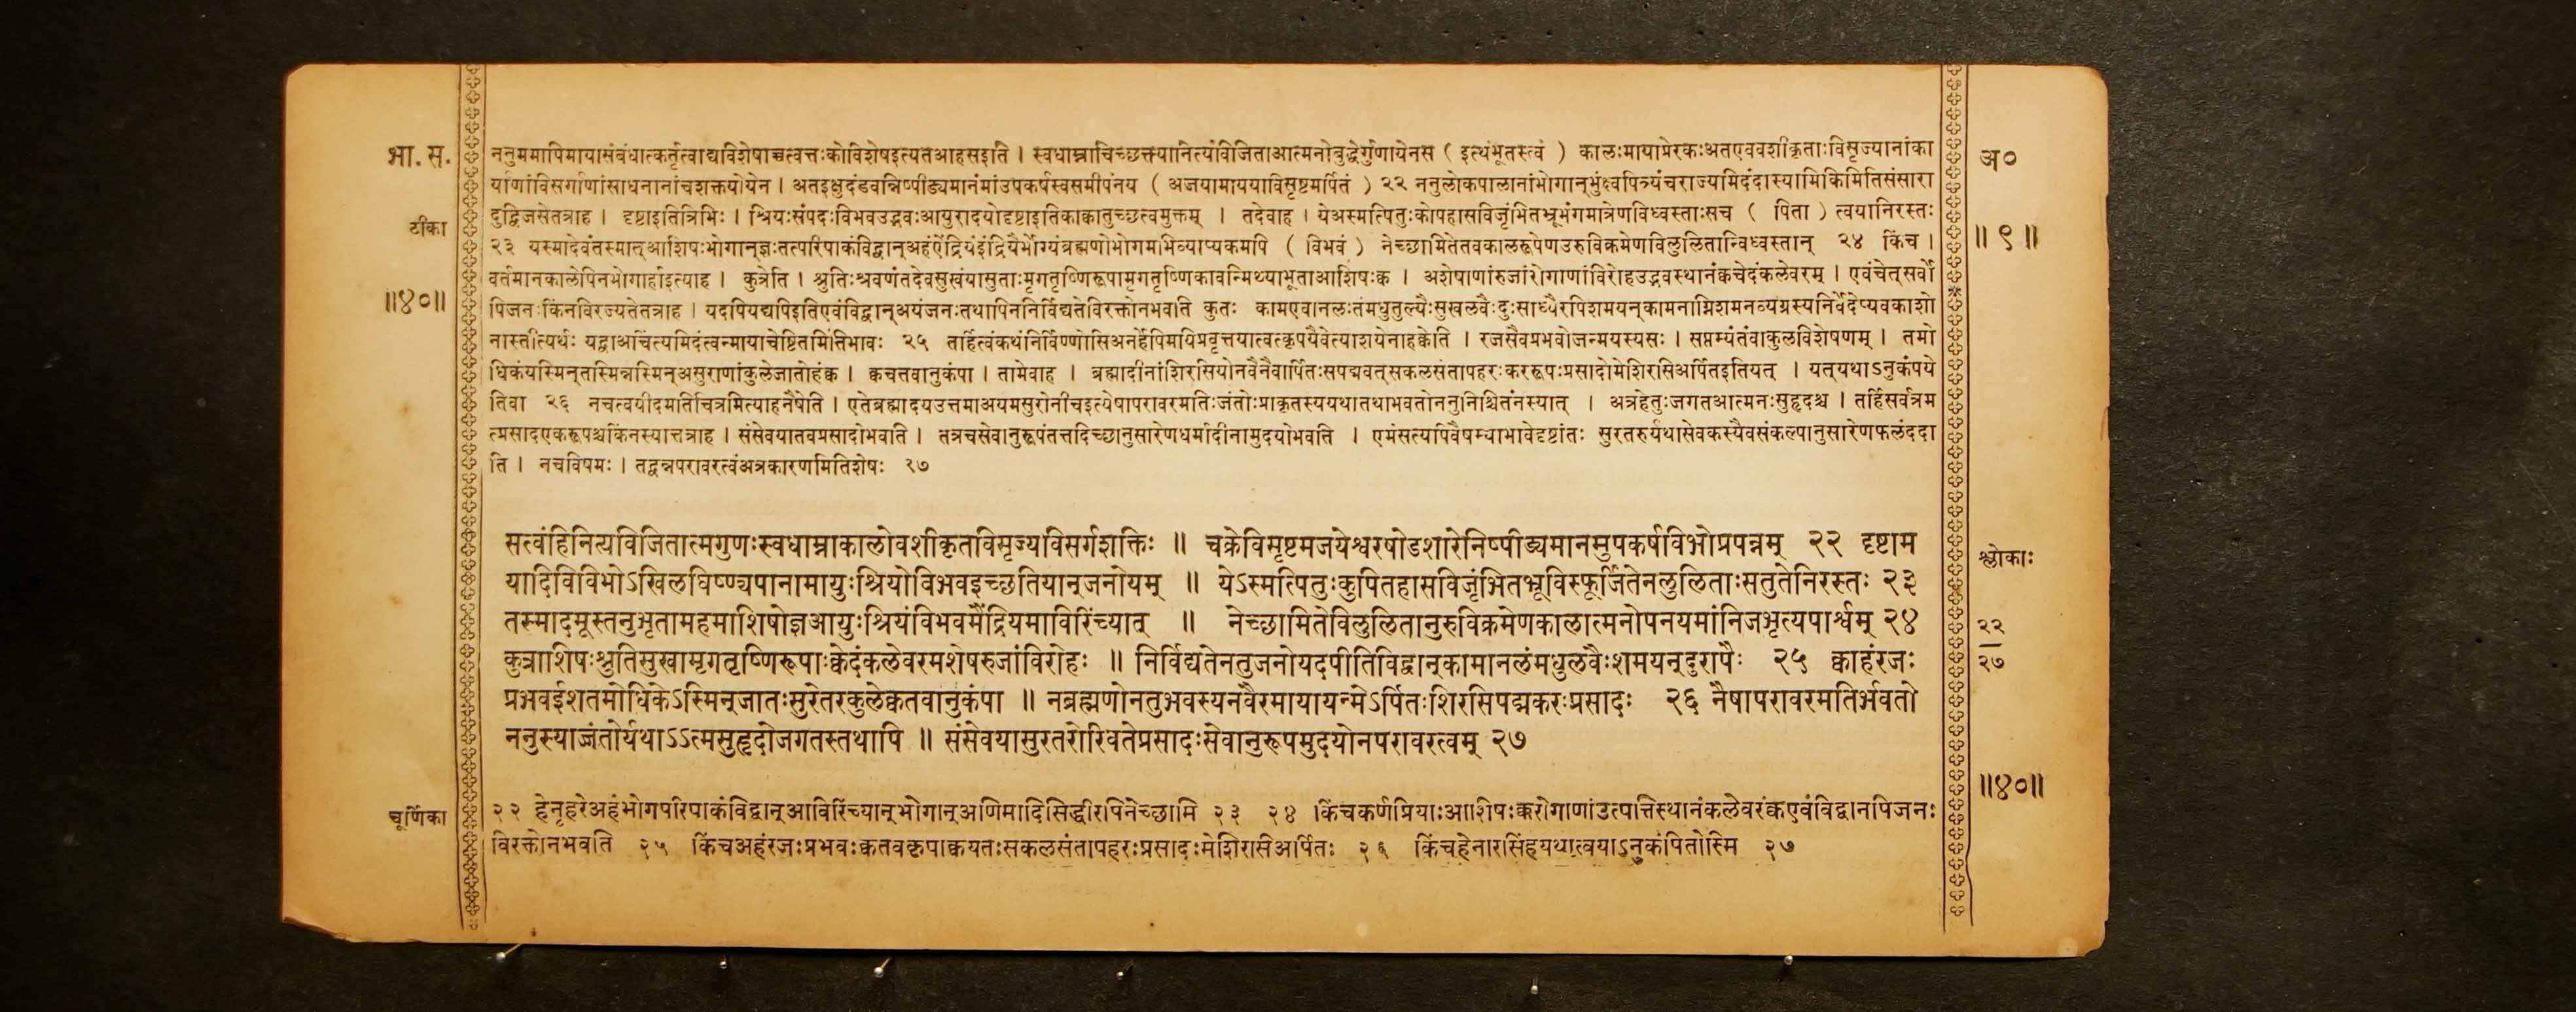 भा. स.
टीका
॥४०॥
चूर्णिका
ननुममापिमायासंबंधात्कर्तृत्वाद्यविशेषाच्चत्वत्तःकोविशेषइत्यतआहसइति । स्वधाम्नाचिच्छक्त्यानित्यंविजिताआत्मनोबुद्धेर्गुणायेनस ( इत्थंभूतस्त्वं ) कालःमायाप्रेरकःअतएववशीकृताःविसृज्यानांका
र्याणांविसर्गाणांसाधनानांचशक्तयोयेन । अतइक्षुदंडवन्निष्पीड्यमानंमांउपकर्षस्वसमीपंनय ( अजयामाययाविसृष्टमर्पितं ) २२ ननुलोकपालानांभोगान्भुंक्ष्वपित्र्यंचराज्यमिदंदास्यामिकिमितिसंसारा
दुद्विजसेतत्राह । दृष्टाइतित्रिभिः । श्रियःसंपदःविभवउद्भवःआयुरादयोदृष्टाइतिकाकातुच्छत्वमुक्तम् । तदेवाह । येअस्मत्पितुःकोपहासविजृंभितभ्रूभंगमात्रेणविध्वस्ताःसच ( पिता ) त्वयानिरस्तः
२३ यस्मादेवंतस्मात्आशिषःभोगान्ज्ञःतत्परिपाकंविद्वान्अहंऐंद्रियंइंद्रियैर्भोग्यंब्रह्मणोभोगमभिव्याप्यकमपि ( विभवं ) नेच्छामितेतवकालरूपेणउरुविक्रमेणविलुलितान्विध्वस्तान् २४ किंच ।
वर्तमानकालेपिनभोगार्हाइत्याह । कुत्रेति । श्रुतिःश्रवणंतदेवसुखंयासुताःमृगतृष्णिरूपामृगतृष्णिकावन्मिथ्याभूताआशिषःक्व । अशेषाणांरुजांरोगाणांविरोहउद्भवस्थानंक्वचेदंकलेवरम् । एवंचेत्सर्वो
पिजनःकिंनविरज्यतेतत्राह । यदपियद्यपिइतिएवंविद्वान्अयंजनःतथापिननिर्विद्यतेविरक्तोनभवति कुतः कामएवानलःतंमधुतुल्यैःसुखलवैःदुःसाध्यैरपिशमयन्कामनाग्निशमनव्यग्रस्यनिर्वेदेप्यवकाशो
नास्तीत्यर्थः यद्वाआचिंत्यमिदंत्वन्मायाचेष्टितमितिभावः २५ तर्हित्वंकथंनिर्विण्णोसिअनर्हेपिमयिप्रवृत्तयात्वत्कृपयैवेत्याशयेनाहक्वेति । रजसैवप्रभवोजन्मयस्यसः । सप्तम्यंतंवाकुलविशेषणम् । तमो
धिकंयस्मिन्तस्मिन्नस्मिन्असुराणांकुलेजातोहंक्व । क्वचतवानुकंपा । तामेवाह । ब्रह्मादीनांशिरसियोनवैनैवार्पितःसपद्मवत्सकलसंतापहरःकररूपःप्रसादोमेशिरसिअर्पितइतियत् । यत्यथाऽनुकंपये
तिवा २६ नचत्वयीदमतिचित्रमित्याहनैषेति । एतेब्रह्मादयउत्तमाअयमसुरोनीचइत्येषापरावरमतिःजंतोःप्राकृतस्ययथातथाभवतोननुनिश्चितंनस्यात् । अत्रहेतुःजगतआत्मनःसुहृदश्च । तर्हिसर्वत्रम
त्प्रसादएकरूपश्चकिंनस्यात्तत्राह । संसेवयातवप्रसादोभवति । तत्रचसेवानुरूपंतत्तदिच्छानुसारेणधर्मादीनामुदयोभवति । एमंसत्यपिवैषम्याभावेदृष्टांतः सुरतरुर्यथासेवकस्यैवसंकल्पानुसारेणफलंददा
ति । नचविषमः । तद्वन्नपरावरत्वंअत्रकारणमितिशेषः २७
सत्वंहिनित्यविजितात्मगुणःस्वधाम्नाकालोवशीकृतविसृज्यविसर्गशक्तिः ॥ चक्रेविसृष्टमजयेश्वरषोडशारेनिष्पीड्यमानमुपकर्षविभोप्रपन्नम् २२ दृष्टाम
यादिविविभोऽखिलधिष्ण्यपानामायुःश्रियोविभवइच्छतियान्जनोयम् ॥ येऽस्मत्पितुःकुपितहासविजृंभितभ्रूविस्फूर्जितेनलुलिताःसतुतेनिरस्तः २३
तस्मादमूस्तनुभृतामहमाशिषोज्ञआयुःश्रियंविभवमैंद्रियमाविरिंच्यात् ॥ नेच्छामितेविलुलितानुरुविक्रमेणकालात्मनोपनयमांनिजभृत्यपार्श्वम् २४
कुत्राशिषःश्रुतिसुखामृगतृष्णिरूपाःक्वेदंकलेवरमशेषरुजांविरोहः ॥ निर्विद्यतेनतुजनोयदपीतिविद्वान्कामानलंमधुलवैःशमयन्दुरापैः २५ क्वाहंरजः
प्रभवईशतमोधिकेऽस्मिन्जातःसुरेतरकुलेक्वतवानुकंपा ॥ नब्रह्मणोनतुभवस्यनवैरमायायन्मेऽर्पितःशिरसिपद्मकरःप्रसादः २६ नैषापरावरमतिर्भवतो
ननुस्याज्जंतोर्यथाऽऽत्मसुहृदोजगतस्तथापि ॥ संसेवयासुरतरोरिवतेप्रसादःसेवानुरूपमुदयोनपरावरत्वम् २७
२२ हेनृहरेअहंभोगपरिपाकंविद्वान्आविरिंच्यान्भोगान्अणिमादिसिद्धीरपिनेच्छामि २३ २४ किंचकर्णप्रियाःआशिषःक्वरोगाणांउत्पत्तिस्थानंकलेवरंक्वएवंविद्वानपिजनः
विरक्तोनभवति २५ किंचअहंरजःप्रभवःक्वतवकृपाक्वयतःसकलसंतापहरःप्रसादःमेशिरसिअर्पितः २६ किंचहेनारसिंहयथात्वयाऽनुकंपितोस्मि २७
अ०
॥ ९ ॥
श्लोकाः
२२
२७
॥४०॥